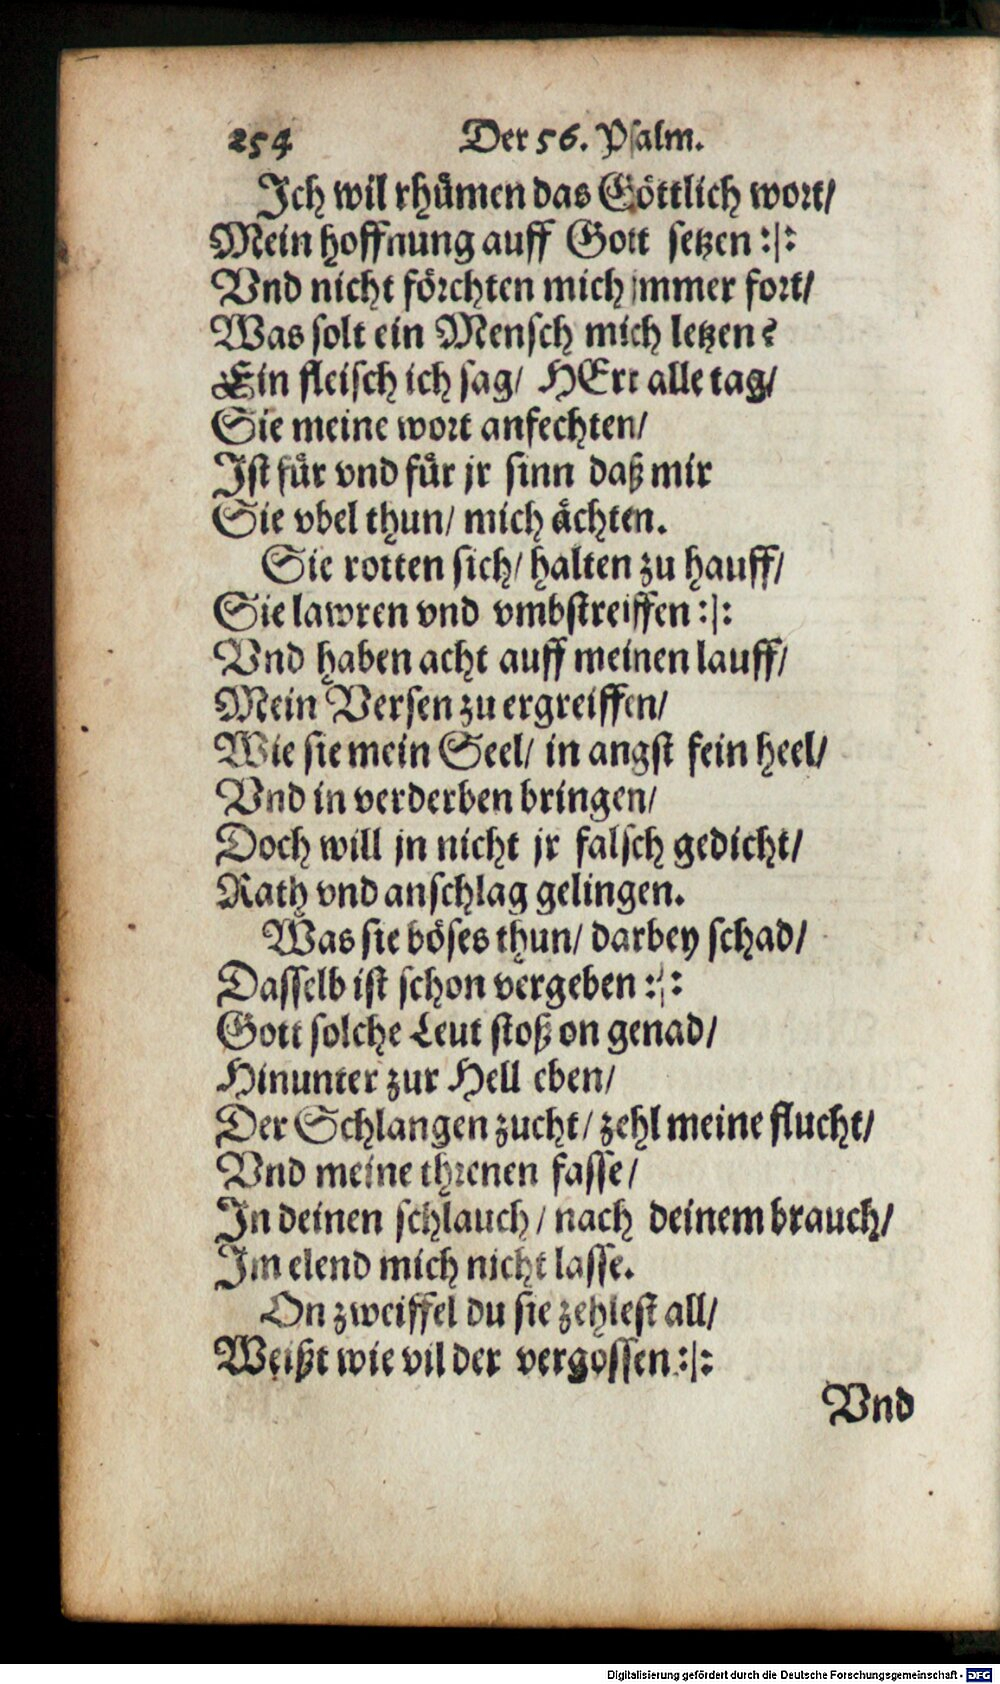 254 Der 56. Psalm.
Ich wil rhümen das Göttlich wort/
Mein hoffnung auff Gott setzen :|:
Vnd nicht förchten mich jmmer fort/
Was solt ein Mensch mich letzen?
Ein fleisch ich sag/ HErr alle tag/
Sie meine wort anfechten/
Ist für vnd für jr sinn daß mir
Sie vbel thun/ mich ächten.
Sie rotten sich/ halten zu hauff/
Sie lawren vnd vmbstreiffen :|:
Vnd haben acht auff meinen lauff/
Mein Versen zu ergreiffen/
Wie sie mein Seel/ in angst fein heel/
Vnd in verderben bringen/
Doch will jn nicht jr falsch gedicht/
Rath vnd anschlag gelingen.
Was sie böses thun/ darbey schad/
Dasselb ist schon vergeben :|:
Gott solche Leut stoß on genad/
Hinunter zur Hell eben/
Der Schlangen zucht/ zehl meine flucht/
Vnd meine threnen fasse/
In deinen schlauch/ nach deinem brauch/
Im elend mich nicht lasse.
On zweiffel du sie zehlest all/
Weißt wie vil der vergossen :|:
Vnd
Digitalisierung gefördert durch die Deutsche Forschungsgemeinschaft - DFG